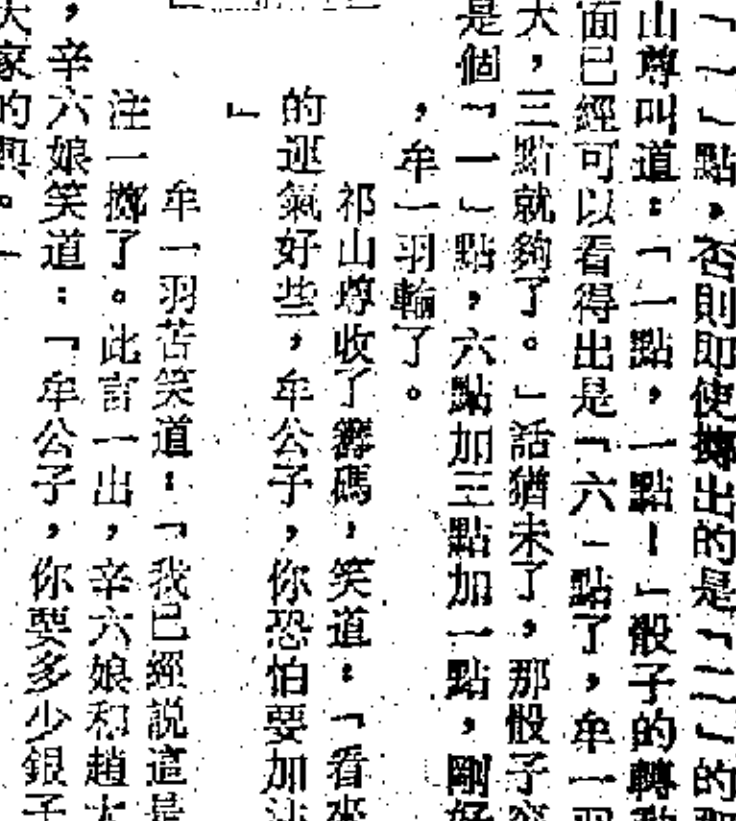 「一」點，否則即使擲出的是「二」的那
山尊叫道：「一點，一點！」骰子的轉動
面已經可以看得出是「六」點了，牟一羽
大，三點就夠了。」話猶未了，那骰子突
是個「一」點，六點加三點加一點，剛好
，牟一羽輸了。
祁山尊收了籌碼，笑道：「看來
的運氣好些，牟公子，你恐怕要加注
」
牟一羽苦笑道：「我已經說這是
注一擲了。此言一出，辛六娘和趙大
，辛六娘笑道：「牟公子，你要多少銀子
大家的興。」